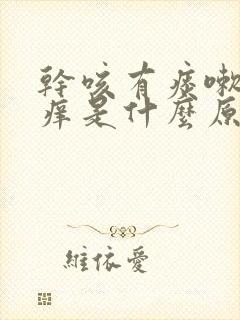 幹咳有痰嗽
痒是什麼原
維依愛